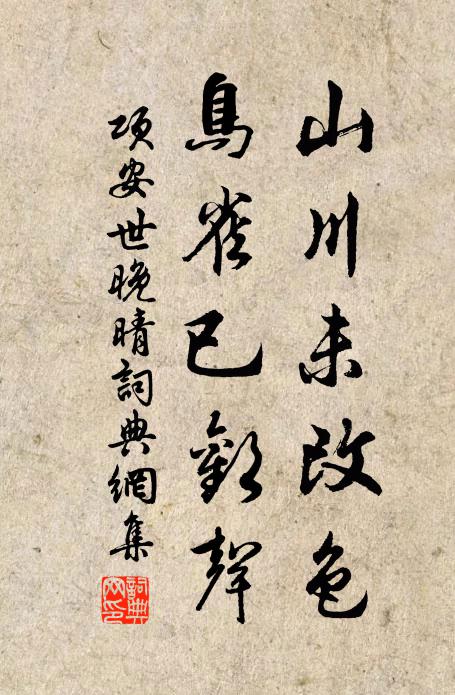 山川未改色
鳥雀已歡聲
項安世晚晴詞典網集
詞典
网印